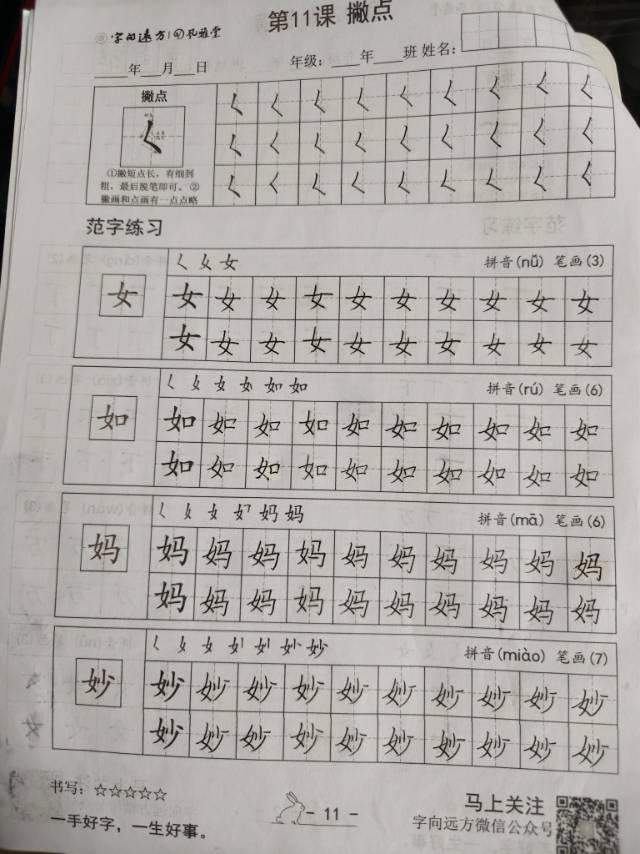 字向远方
第11课 撇点
____年___月___日 年级:____年___班 姓名:
撇点
①撇短点长，有细到
粗，最后脱笔即可。②
撇画和点画有一点点略
范字练习
く 女 女 拼音(nǚ) 笔画(3)
女 女 女 女 女 女 女 女 女 女 女
女 女 女 女 女 女 女 女 女 女
如 如 拼音(rú) 笔画(6)
如 如 如 如 如 如 如 如 如 如 如
如 如 如 如 如 如 如 如 如 如
妈 妈 拼音(mā) 笔画(6)
妈 妈 妈 妈 妈 妈 妈 妈 妈 妈 妈
妈 妈 妈 妈 妈 妈 妈 妈 妈 妈
妙 拼音(miào) 笔画(7)
妙 妙 妙 妙 妙 妙 妙 妙 妙 妙 妙
妙 妙 妙 妙 妙 妙 妙 妙 妙 妙
书写：☆☆☆☆☆
一手好字，一生好事。
- 11 -
马上关注
字向远方微信公众号